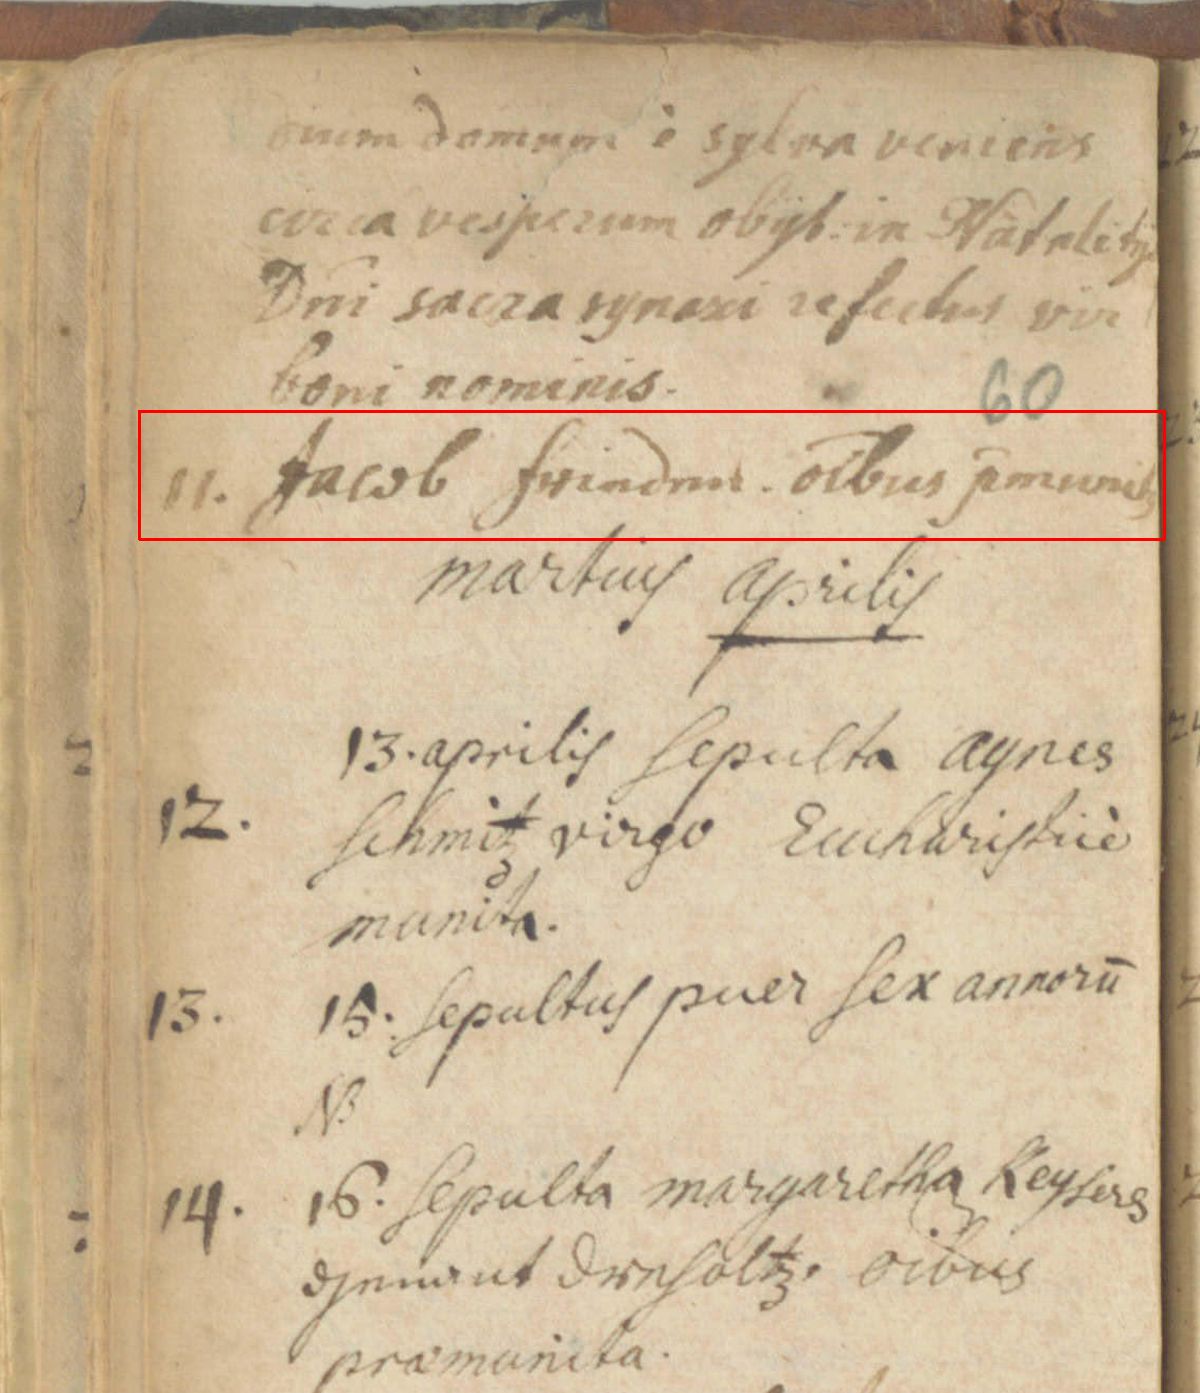 suum domum è sylva veniens
circa vesperum obijt. in Natalitijs
Dni sacra synaxi refectus vir
boni nominis.
60
11. Jacob oibus
martius aprilis
13. aprilis sepulta agnes
12. Schmitz virgo Eucharistiè
munita.
13. 15. sepultus puer sex annorū
NB
14. 16. sepulta margaretha Keysers
oibus
præmunita.